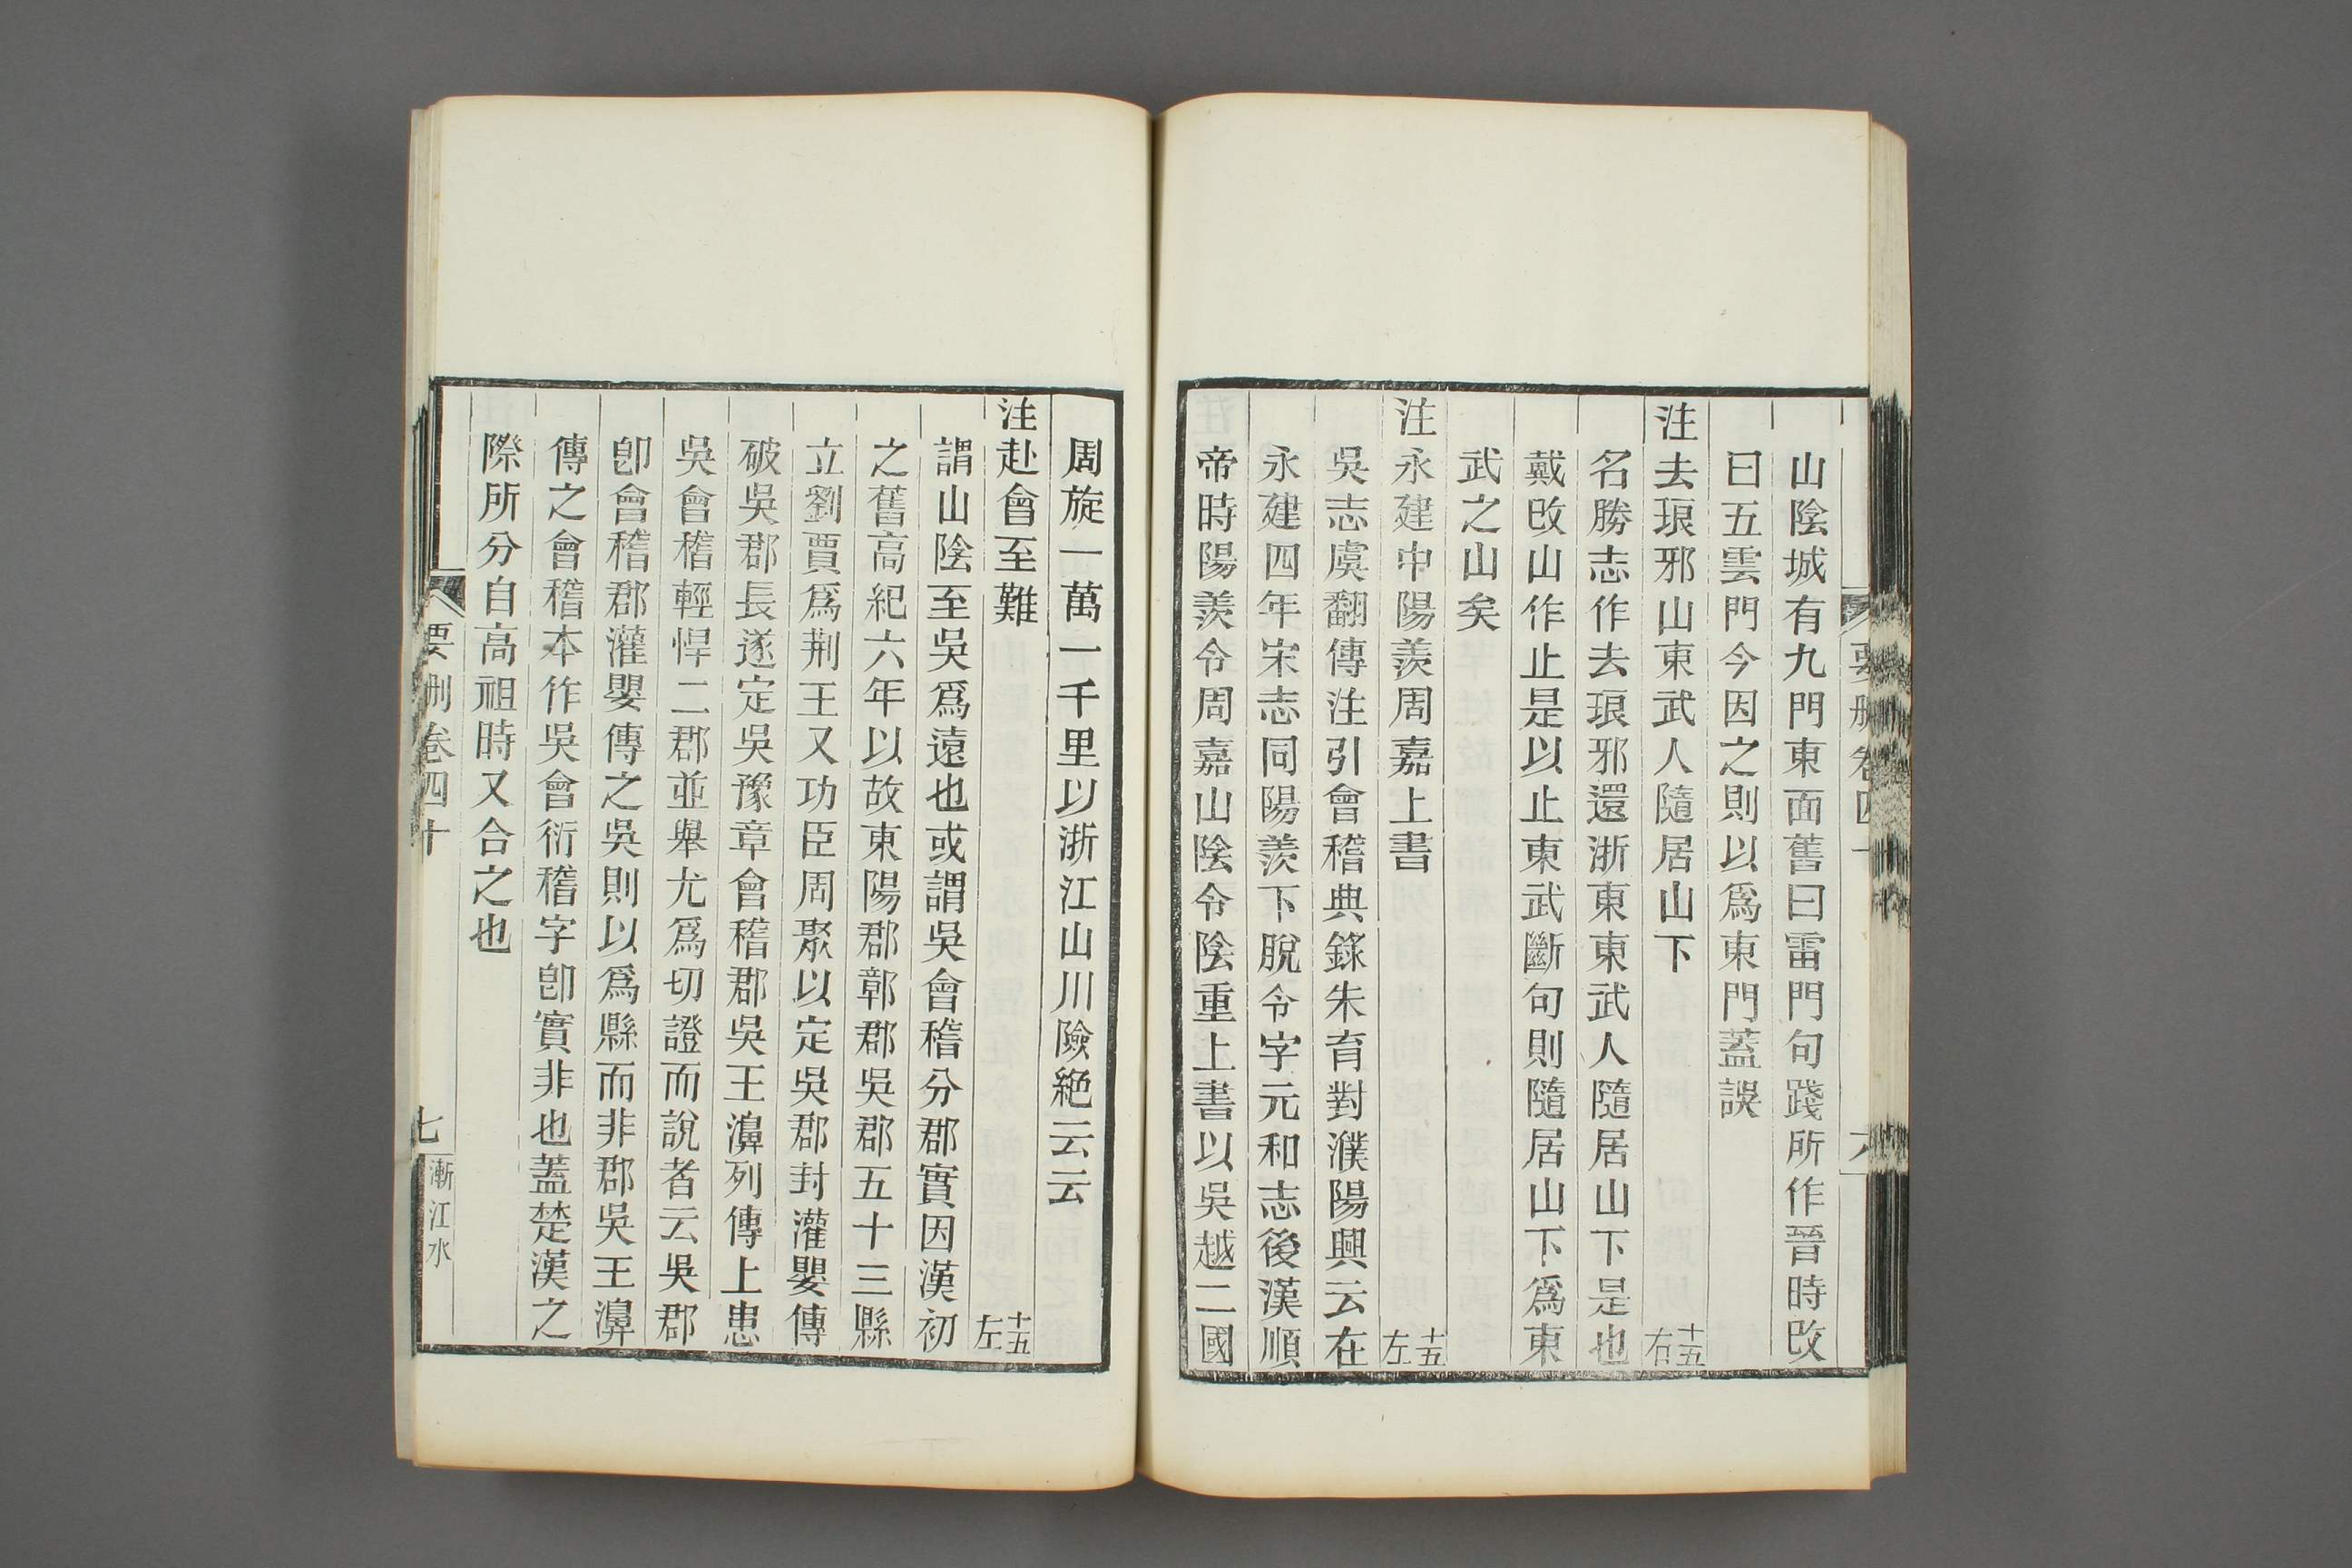 山陰城有九門東面舊曰雷門句踐所作晉時改
曰五雲門今因之則以爲東門蓋誤
注去琅邪山東武人隨居山下 十五右
名勝志作去琅邪還浙東東武人隨居山下是也
戴改山作止是以止東武斷句則隨居山下爲東
武之山矣
注永建中陽羨周嘉上書 十五左
吳志虞翻傳注引會稽典錄朱育對濮陽興云在
永建四年宋志同陽羨下脫令字元和志後漢順
帝時陽羨令周嘉山陰令陰重上書以吳越二國
周旋一萬一千里以浙江山川險絶云云
注赴會至難 十五左
謂山陰至吳爲遠也或謂吳會稽分郡實因漢初
之舊高紀六年以故東陽郡鄣郡吳郡五十三縣
立劉賈爲荆王又功臣周聚以定吳郡封灌嬰傳
破吳郡長遂定吳豫章會稽郡吳王濞列傳上患
吳會稽輕悍二郡並舉尤爲切證而說者云吳郡
卽會稽郡灌嬰傳之吳則以爲縣而非郡吳王濞
傳之會稽本作吳會衍稽字卽實非也蓋楚漢之
際所分自高祖時又合之也
要刪卷四十
七
漸江水